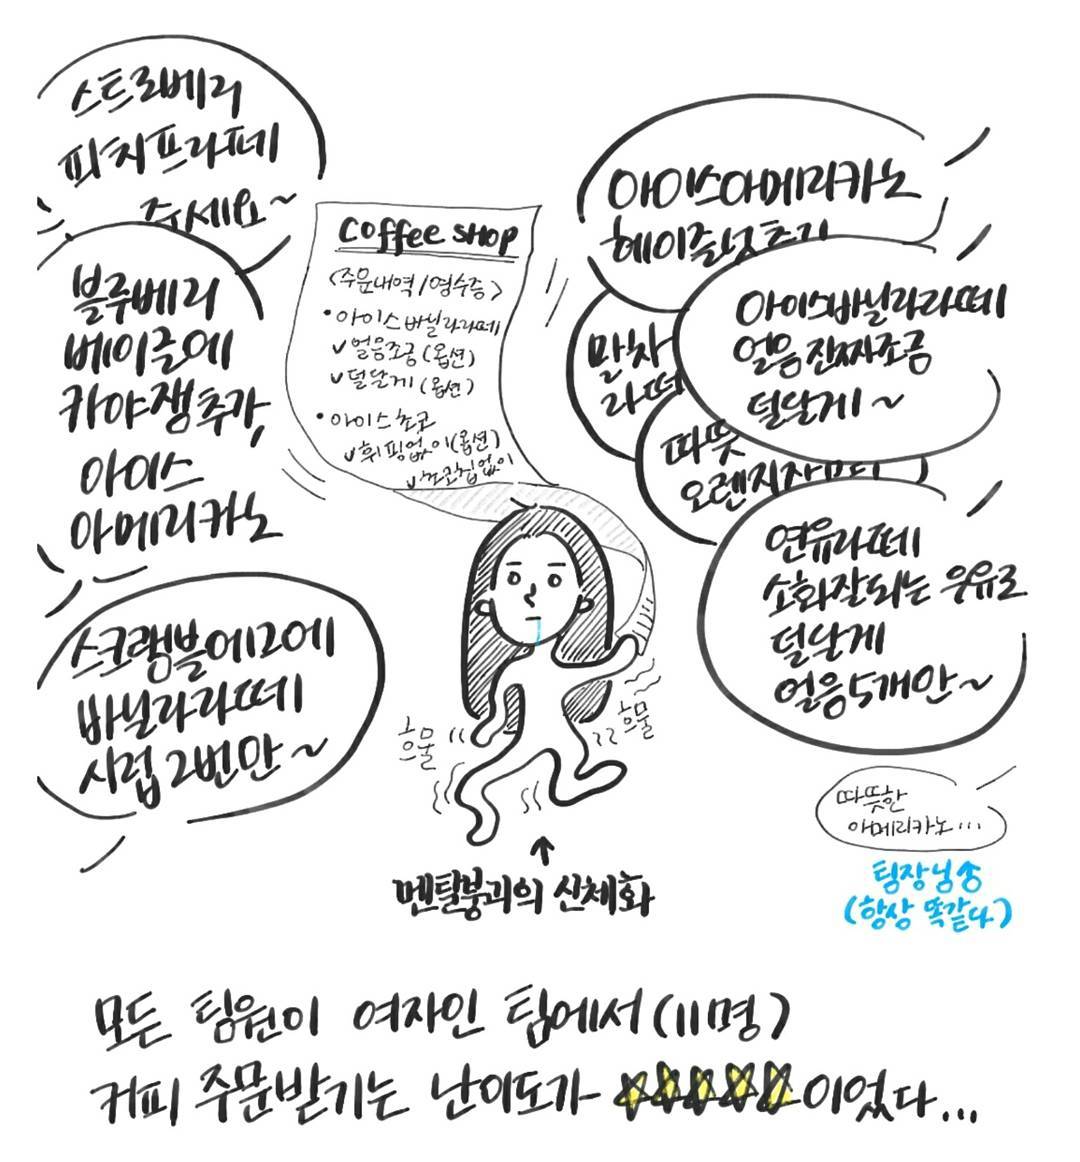 스트로베리
피치프라떼
주세요~
블루베리
베이글에
카야잼추가,
아이스
아메리카노
스크램블에그에
바닐라라떼
시럽2번만~
coffee SHOP
<주문내역/영수증>
•아이스바닐라라떼
✓얼음조금(옵션)
✓덜달게(옵션)
•아이스초코
✓휘핑없이(옵션)
✓초코칩없이
아이스아메리카노
헤이즐넛추가
말차
라떼
따뜻
오렌지자
아이스바닐라라떼
얼음진짜조금
덜달게~
연유라떼
소화잘되는 우유로
덜달게
얼음5개만~
따뜻한
아메리카노...
팀장님
(항상 똑같다)
흐물
흐물
↑
멘탈붕괴의 신체화
모든 팀원이 여자인 팀에서(11명)
커피 주문받기는 난이도가 ☆☆☆☆☆이었다...